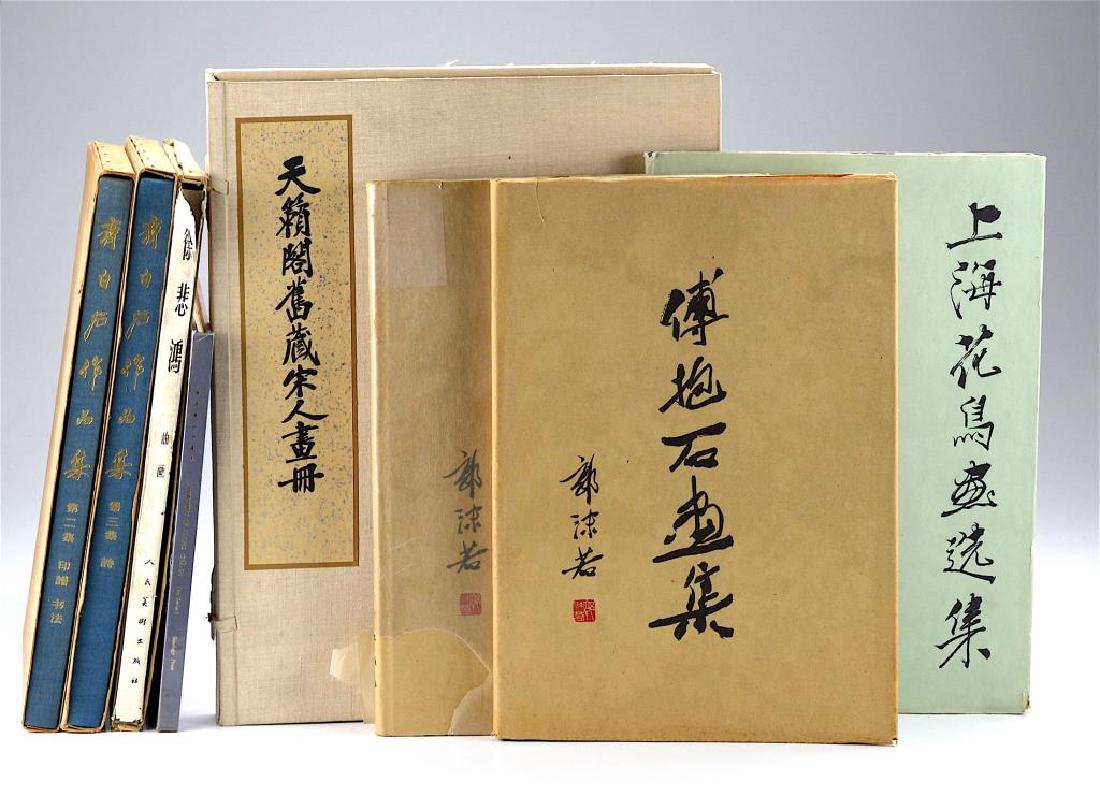 齊白石作品集 第二集 印譜 书法
齊白石作品集 第三集 詩
徐悲鴻 油画 人民美術出版社
天籟閣舊藏宋人畫冊
郭沫若
傅抱石画集
郭沫若
上海花鳥画选集